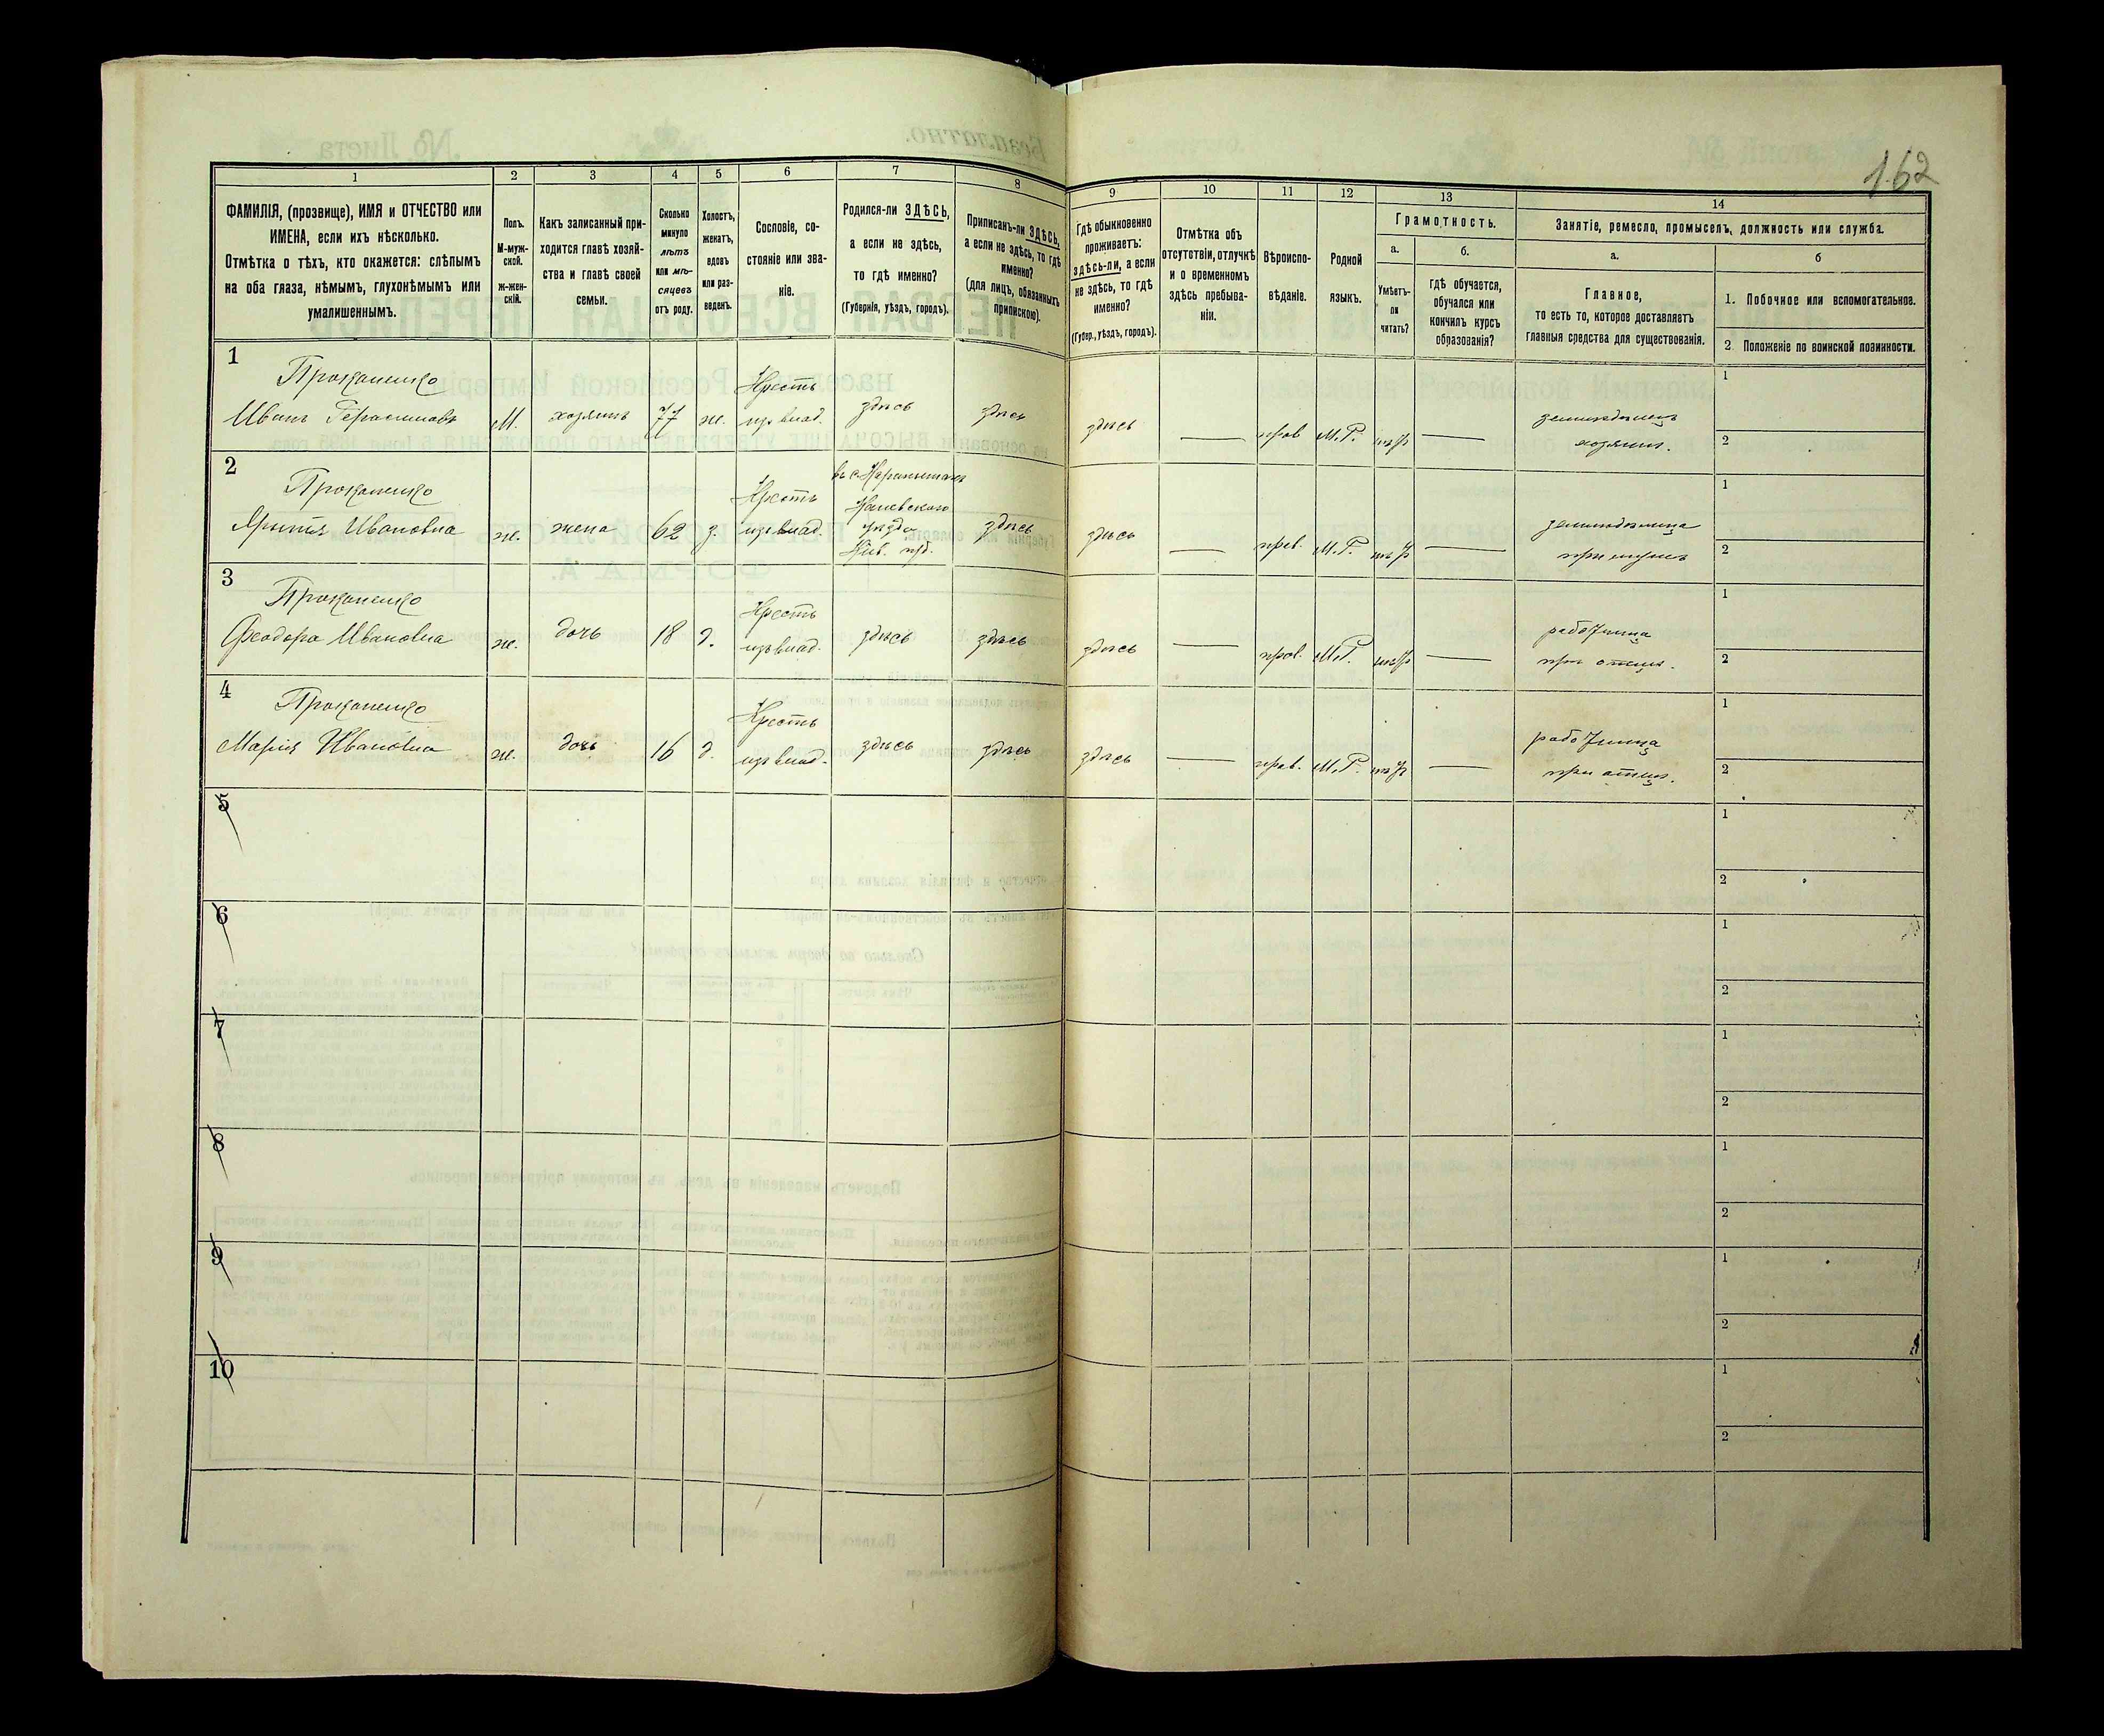 162
1
2
3
4
5
6
7
8
9
10
11
12
13
14
ФАМИЛІЯ, (прозвище), ИМЯ и ОТЧЕСТВО или
ИМЕНА, если ихъ нѣсколько.
Отмѣтка о тѣхъ, кто окажется: слѣпымъ
на оба глаза, нѣмымъ, глухонѣмымъ или
умалишеннымъ.
Полъ.
М-муж-
ской.
Ж-жен-
скій.
Какъ записанный при-
ходится главѣ хозяй-
ства и главѣ своей
семьи.
Сколько
минуло
лѣтъ
или мѣ-
сяцевъ
отъ роду.
Холостъ,
женатъ,
вдовъ
или раз-
веденъ.
Сословіе, со-
стояніе или зва-
ніе.
Родился-ли ЗДѢСЬ,
а если не здѣсь,
то гдѣ именно?
(Губернія, уѣздъ, городъ).
Приписанъ-ли ЗДѢСЬ,
а если не здѣсь, то гдѣ
именно?
(для лицъ, обязанныхъ
припискою).
Гдѣ обыкновенно
проживаетъ:
здѣсь-ли, а если
не здѣсь, то гдѣ
именно?
(Губер., уѣздъ, городъ).
Отмѣтка объ
отсутствіи, отлучкѣ
и о временномъ
здѣсь пребыва-
ніи.
Вѣроиспо-
вѣданіе.
Родной
языкъ.
Грамотность.
а.
Умѣетъ-
ли
читать?
б.
гдѣ обучается,
обучался или
кончилъ курсъ
образованія?
Занятіе, ремесло, промыселъ, должность или служба.
а.
Главное,
то есть то, которое доставляетъ
главныя средства для существованія.
б
1. Побочное или вспомогательное.
2. Положеніе по воинской повинности.
1
Иванъ Герасимовъ
М.
хозяинъ
77
ж.
Крест
из влад.
здѣсь
здѣсь
здѣсь
прав
М.Р.
земледѣлецъ
хозяинъ.
1
2
2
Ивановна
ж.
жена
62
з.
Крест
изъ влад.
Каневскаго
уѣзда
Кіев.
здѣсь
здѣсь
прав.
М.Р.
земледѣлица
при мужѣ
1
2
3
Феодора Ивановна
ж.
дочь
18
д.
Крест
изъ влад.
здѣсь
здѣсь
здѣсь
прав.
М.Р.
работница
при отцѣ.
1
2
4
Марія Ивановна
ж.
дочь
16
д.
Крест
изъ влад.
здѣсь
здѣсь
здѣсь
прав.
М.Р.
работница
при отцѣ.
1
2
5
1
2
6
1
2
7
1
2
8
1
2
9
1
2
10
1
2